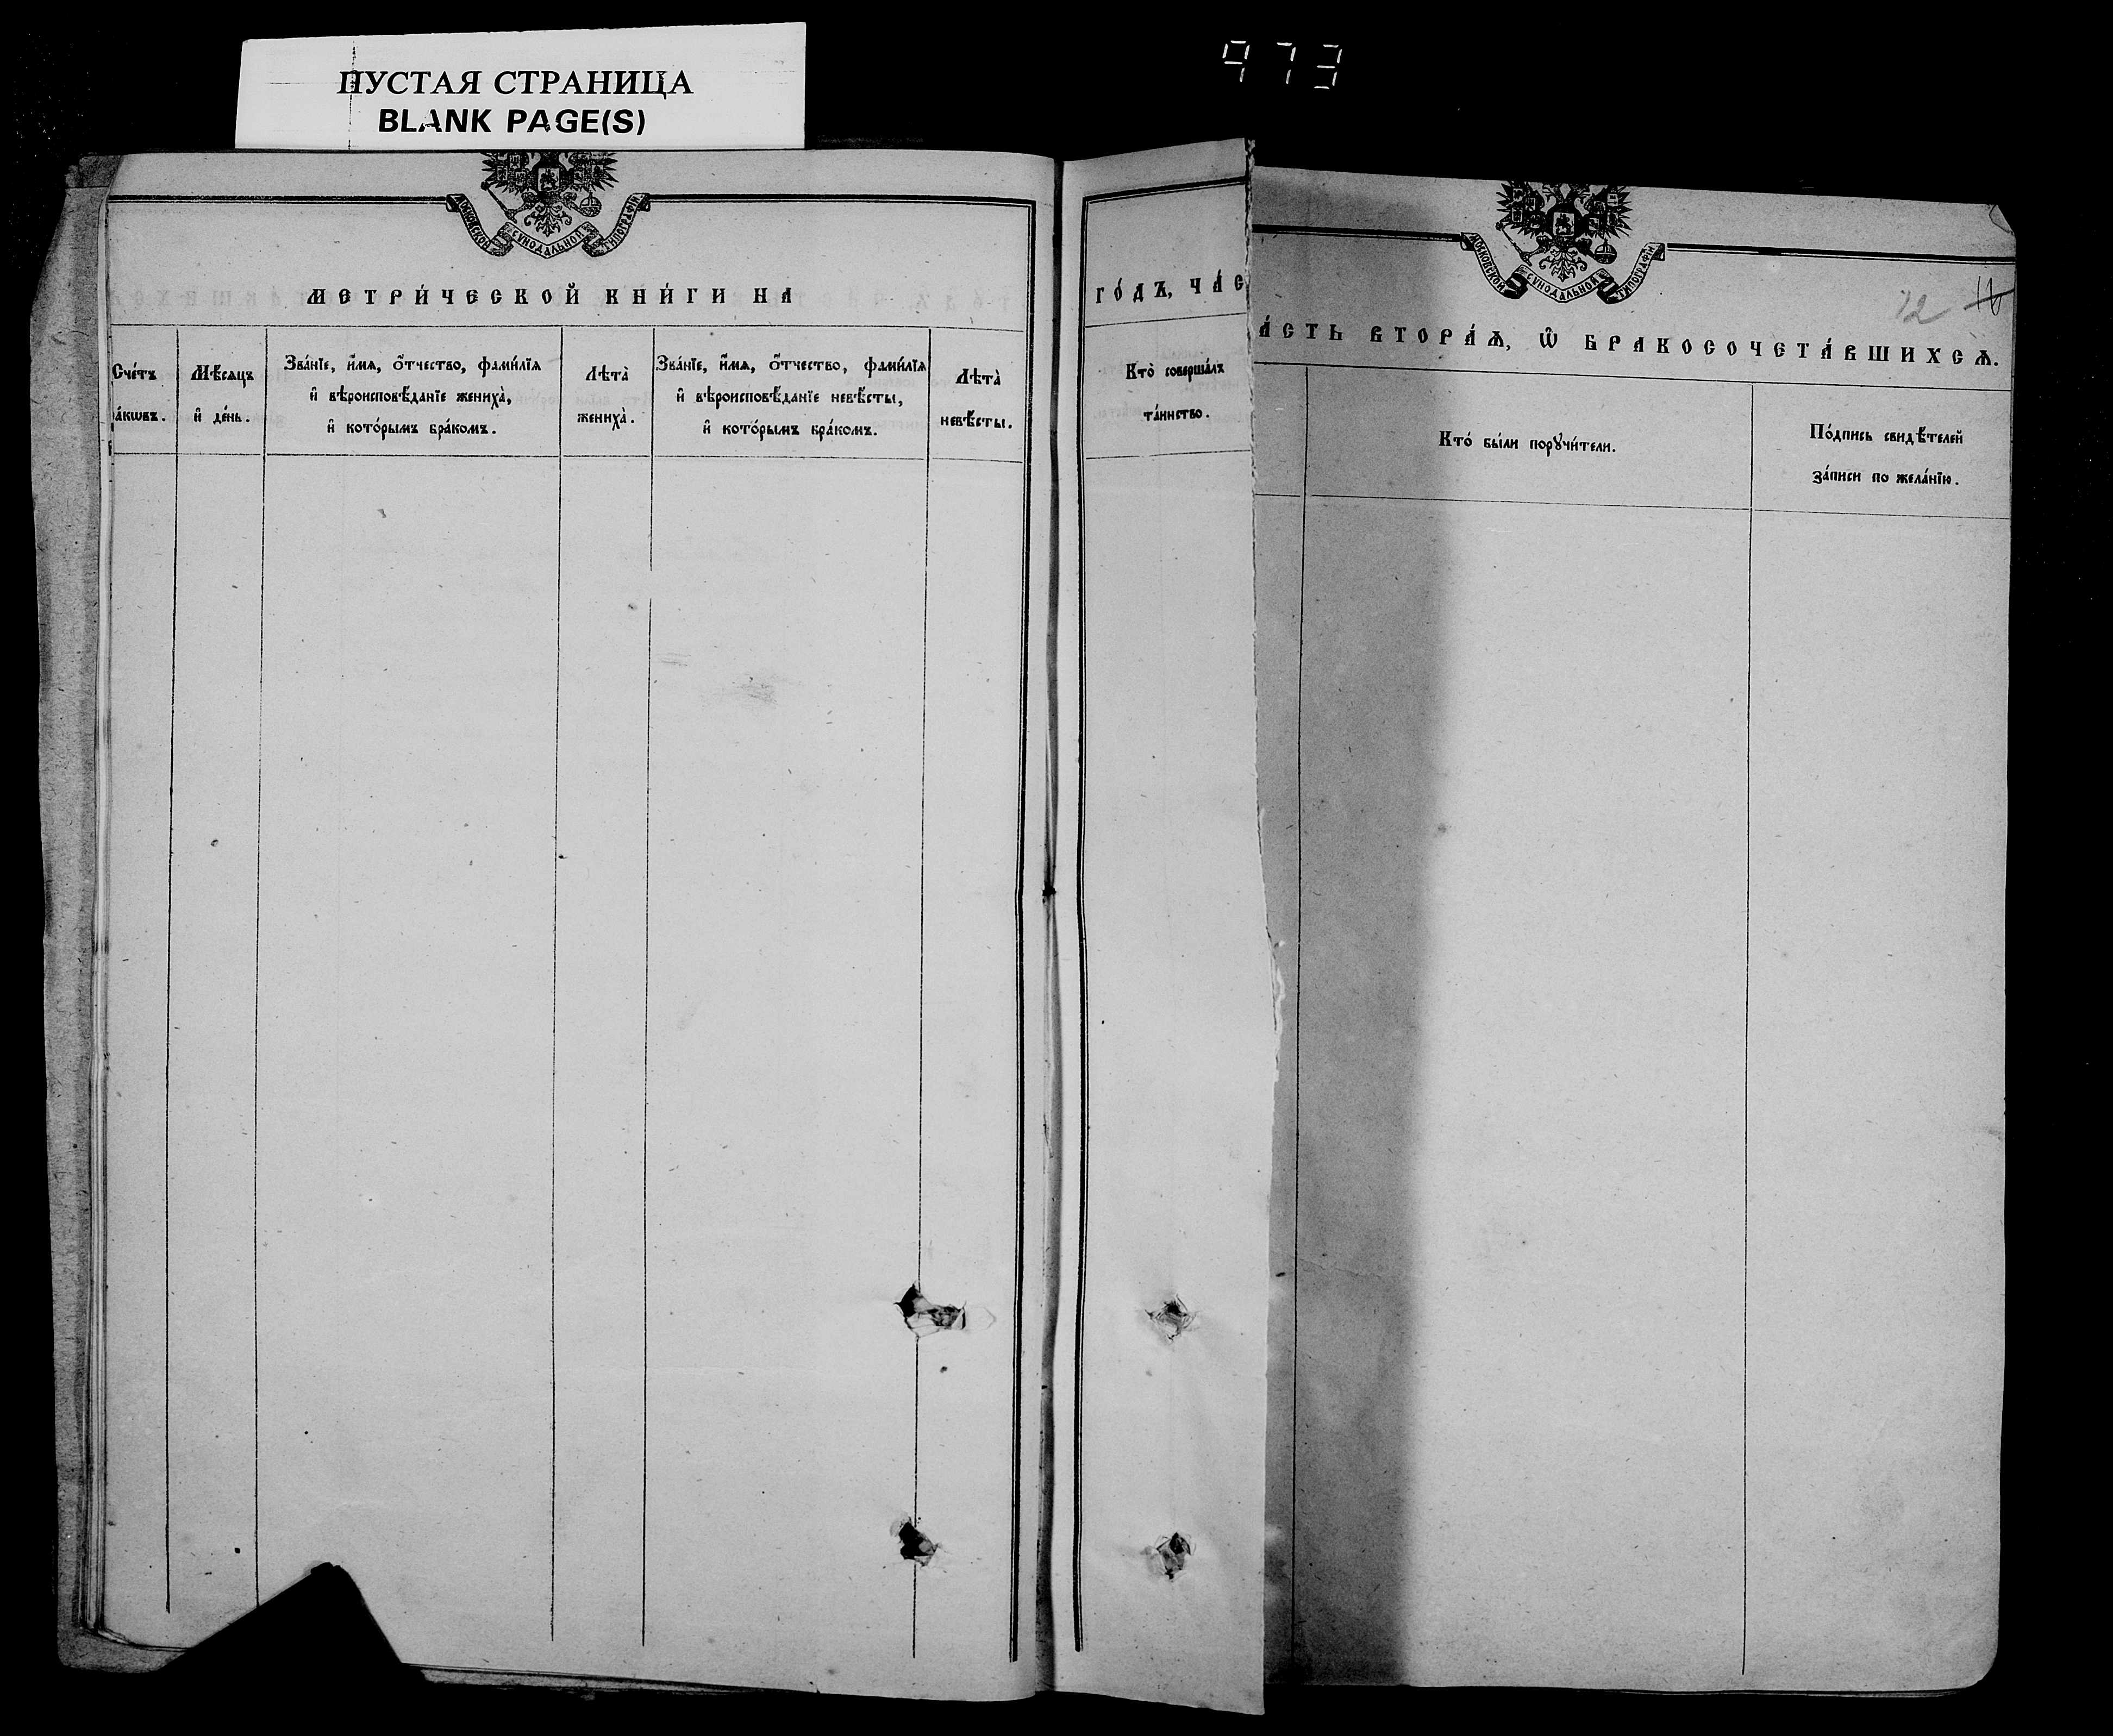 ПУСТАЯ СТРАНИЦА
BLANK PAGE(S)
973
МОСКОВСКОЙ СѴНОДАЛЬНОЙ ТИПОГРАФІИ
МЕТРИ́ЧЕСКОЙ КНИ́ГИ НА
Сче́тъ
а́кѡвъ.
Мѣ́сяцъ
и҆ де́нь.
Зва́нїе, и҆́мя, ѻ҆́тчество, фами́лїя
и҆ вѣроисповѣ́данїе жениха̀,
и҆ кото́рымъ бра́комъ.
Лѣта̀
жениха̀.
Зва́нїе, и҆́мя, ѻ҆́тчество, фами́лїя
и҆ вѣроисповѣ́данїе невѣ́сты,
и҆ кото́рымъ бра́комъ.
Лѣта̀
невѣ́сты.
ГО́ДЪ, ЧА́С
Кто̀ соверша́лъ
та́инство.
МОСКОВСКОЙ СѴНОДАЛЬНОЙ ТИПОГРАФІИ
12
А́СТЬ ВТОРА́Ѧ, Ѡ҆ БРАКОСОЧЕТА́ВШИХСѦ.
Кто́ бы́ли порꙋчи́тели.
По́дпись свидѣ́телей
за́писи по жела́нїю.